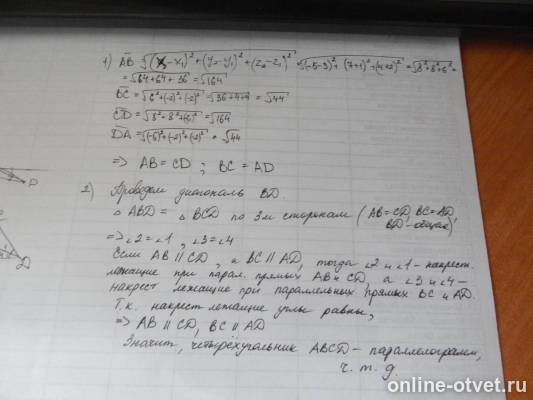 1) AB = √(x₂-x₁)² + (y₂-y₁)² + (z₂-z₁)² = √(-5-3)² + (7+1)² + (4+2)² = √8²+8²+6² =
= √64+64+36 = √164
BC = √6²+(-2)²+(-2)² = √36+4+4 = √44
CD = √8²+8²+6² = √164
DA = √(-6)²+(-2)²+(-2)² = √44
=> AB = CD ; BC = AD
2) Проводем диагональ BD.
△ ABD = △ BCD по 3м сторонам (AB=CD, BC=AD,
BD-общая)
=> ∠2=∠1 , ∠3=∠4
Если AB || CD , а BC || AD, тогда ∠2 и ∠1 - накрест
лежащие при парал. прямых AB и CD, а ∠3 и ∠4 -
накрест лежащие при параллельных прямых BC и AD.
Т.к. накрест лежащие углы равны,
=> AB || CD, BC || AD
Значит, четырёхугольник ABCD - параллелограмм,
ч. т. д.
D
D
online-otvet.ru